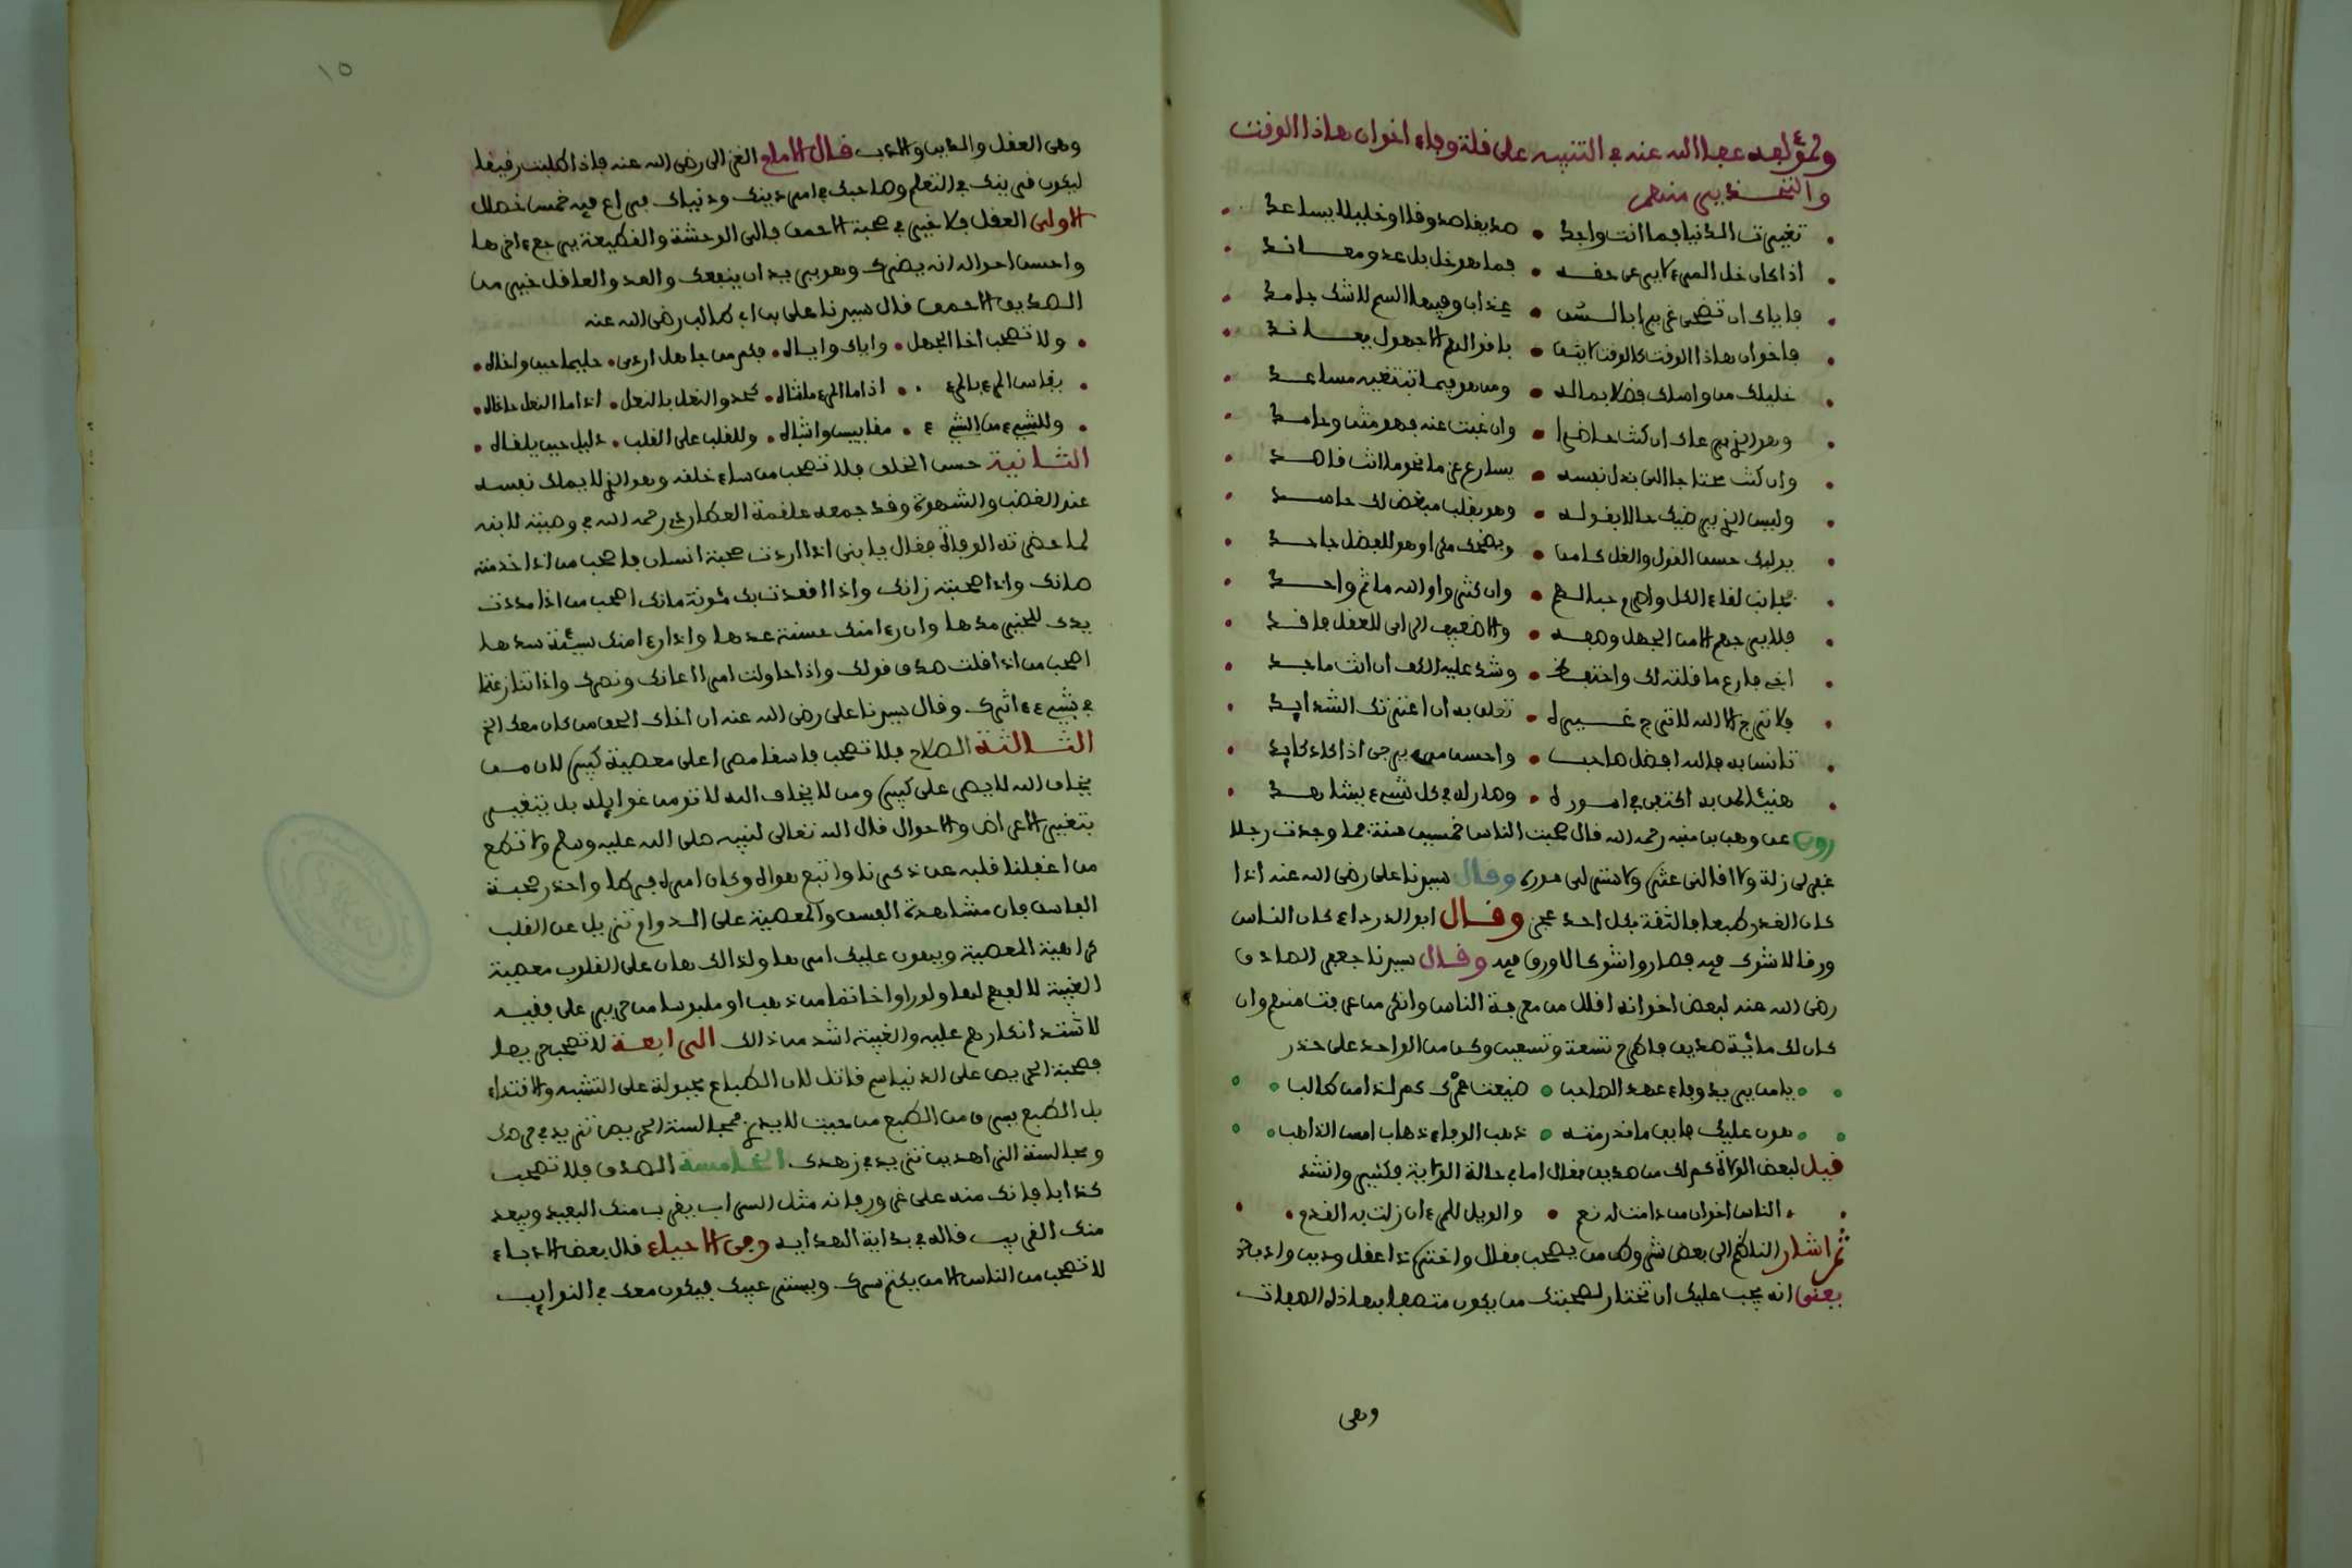 ولمؤلفه عفا الله عنه في التنبيه على قلة وفاء اخوان هاذا الوقت
والتحذير منهم
تغيرت الدنيا فما انت واجد • صديقا صدوقا او خليلا يساعد
اذا كان خل المرء لا يرعى حقه • فما هو خل بل عدو معاند
فاياك ان تصحب غرير ابا لسن • عذاب وفيها السم لا شك جامد
فاخوان هاذا الوقت كالوقت لا تثق • باقوالهم الا جهول يعاند
خليلك من واساك فضلا بماله • ومن هو فيما تبتغيه مساعد
وهو الذي يرعاك ان كنت حاضرا • وان غبت عنه فهو مثن وحامد
وان كنت محتاجا الى بذل نفسه • يسارع عزما نحو ما انت قاصد
وليس الذي يرضيك حالا بقوله • وهو بقلب مبغض لك حاسد
يوليك حسن القول والغل كامن • ويضحك مكرا وهو للفضل جاحد
تجانب لقاء الكل واصرم حبالهم • وان كثروا والله ما ثم واحد
فلا يرجهم الا من الجهل وصفه • والا ضعيف الراي للعقل فاقد
اخي فارع ما قلته لك واحتفظ • وشد عليه الكف ان انت ماجد
فلا ترج الا الله لا ترج غيره • تعلق به ان اعنتك الشدايد
تانس به فالله افضل صاحب • واحسن من يرجى اذا كاد كايد
هنيئا لمن به اكتفى في اموره • وصار له في كل شيء يشاهد
روي عن وهب بن منبه رحمه الله قال صحبت الناس خمسين سنة فما وجدت رجلا
غفر لي زلة ولا اقالني عثرة ولا ستر لي عورة وقال سيدنا علي رضي الله عنه اذا
كان الغدر طبعا فالثقة بكل احد عجز وقال ابو الدرداء كان الناس
ورقا لا شوك فيه فصاروا شوكا لا ورق فيه وقال سيدنا جعفر الصادق
رضي الله عنه لبعض اخوانه اقلل من معرفة الناس وانكر من عرفت منهم وان
كان لك مائة صديق فاطرح تسعة وتسعين وكن من الواحد على حذر
يا من يريد وفاء عهد الصاحب • ضيعت عمرك كم لذا من طالب
هون عليك فاين ما قد رمته • ذهب الوفاء ذهاب امس الذاهب
قيل لبعض الولاة كم لك من صديق فقال اما في حالة الولاية فكثير وانشد
الناس اخوان من دامت له نعم • والويل للمرء ان زلت به القدم
ثم اشار الناظم الى بعض شروط من يصحب فقال واختر ذا عقل ودين وادب
يعني انه يجب عليك ان تختار لصحبتك من يكون متصفا بهاذه الصفات
وهي
١٥
وهي العقل والدين والادب قال الامام الغزالي رضي الله عنه فاذا طلبت رفيقا
ليكون قرينك في التعلم وصاحبك في امر دينك ودنياك فراع فيه خمس خصال
الاولى العقل فلا خير في صحبة الاحمق فالى الوحشة والقطيعة يرجع اخرها
واحسن احواله انه يضرك وهو يريد ان ينفعك والعدو العاقل خير من
الصديق الاحمق قال سيدنا علي بن ابي طالب رضي الله عنه
• ولا تصحب اخا الجهل • واياك واياه • فكم من جاهل اردى • حليما حين واخاه •
• يقاس المرء بالمرء • اذا ما المرء ماشاه • كحذو النعل بالنعل • اذا ما النعل حاذاه •
• وللشيء من الشيء • مقاييس واشباه • وللقلب على القلب • دليل حين يلقاه •
الثانية حسن الخلق فلا تصحب من ساء خلقه وهو الذي لا يملك نفسه
عند الغضب والشهوة وقد جمعه علقمة العطاردي رحمه الله في وصيته لابنه
لما حضرته الوفاة فقال يا بني اذا اردت صحبة انسان فاصحب من اذا خدمته
صانك واذا صحبته زانك واذا قعدت بك مئونة مانك اصحب من اذا مددت
يدك للخير مدها وان رءا منك حسنة عدها واذا رءا منك سيئة سدها
اصحب من اذا قلت صدق قولك واذا حاولت امرا اعانك ونصرك واذا تنازعتما
في شيء ءاثرك وقال سيدنا علي رضي الله عنه ان اخاك الحق من كان معك الخ
الثالثة الصلاح فلا تصحب فاسقا مصرا على معصية كبيرة لان من
يخاف الله لا يصر على كبيرة ومن لا يخاف الله لا تومن غوايله بل يتغير
بتغير الاعراض والاحوال قال الله تعالى لنبيه صلى الله عليه وسلم ولا تطع
من اغفلنا قلبه عن ذكرنا واتبع هواه وكان امره فرطا واحذر صحبة
الفاسق فان مشاهدة الفسق والمعصية على الدوام تزيل عن القلب
كراهية المعصية ويهون عليك امرها ولذالك هان على القلوب معصية
الغيبة لالفهم لها ولو راوا خاتما من ذهب او ملبوسا من حرير على فقيه
لاشتد انكارهم عليه والغيبة اشد من ذالك الرابعة لا تصحب حريصا
فصحبة الحريص على الدنيا سم قاتل لان الطباع مجبولة على التشبه والاقتداء
بل الطبع يسرق من الطبع من حيث لا يدري فمجالسة الحريص تزيد في حرصك
ومجالسة الزاهد تزيد في زهدك الخامسة الصدق فلا تصحب
كذابا فانك منه على غرور فانه مثل السراب يقرب منك البعيد ويبعد
منك القريب قاله في بداية الهداية وفي الاحياء قال بعض الادباء
لا تصحب من الناس الا من يكتم سرك ويستر عيبك فيكون معك في النوايب